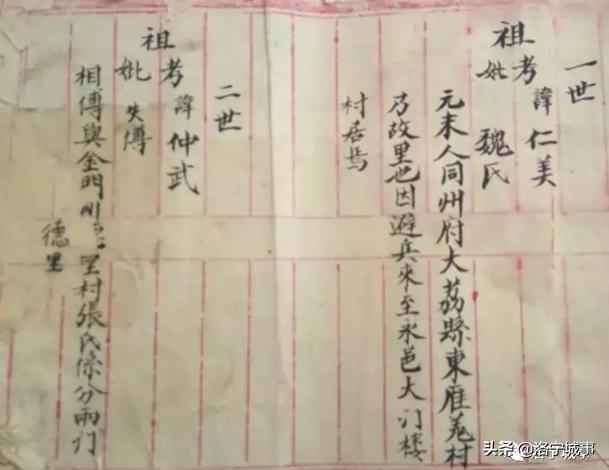 一世
祖
考 諱 仁美
妣 魏氏
元末人同州府大荔縣東雁羌村
乃故里也因避兵來至永邑大门楼
村居焉
二世
祖
考 諱 仲武
妣 失傳
相傳與金門川村張氏係分兩门
德里
头条 @洛宁城事
洛宁城事